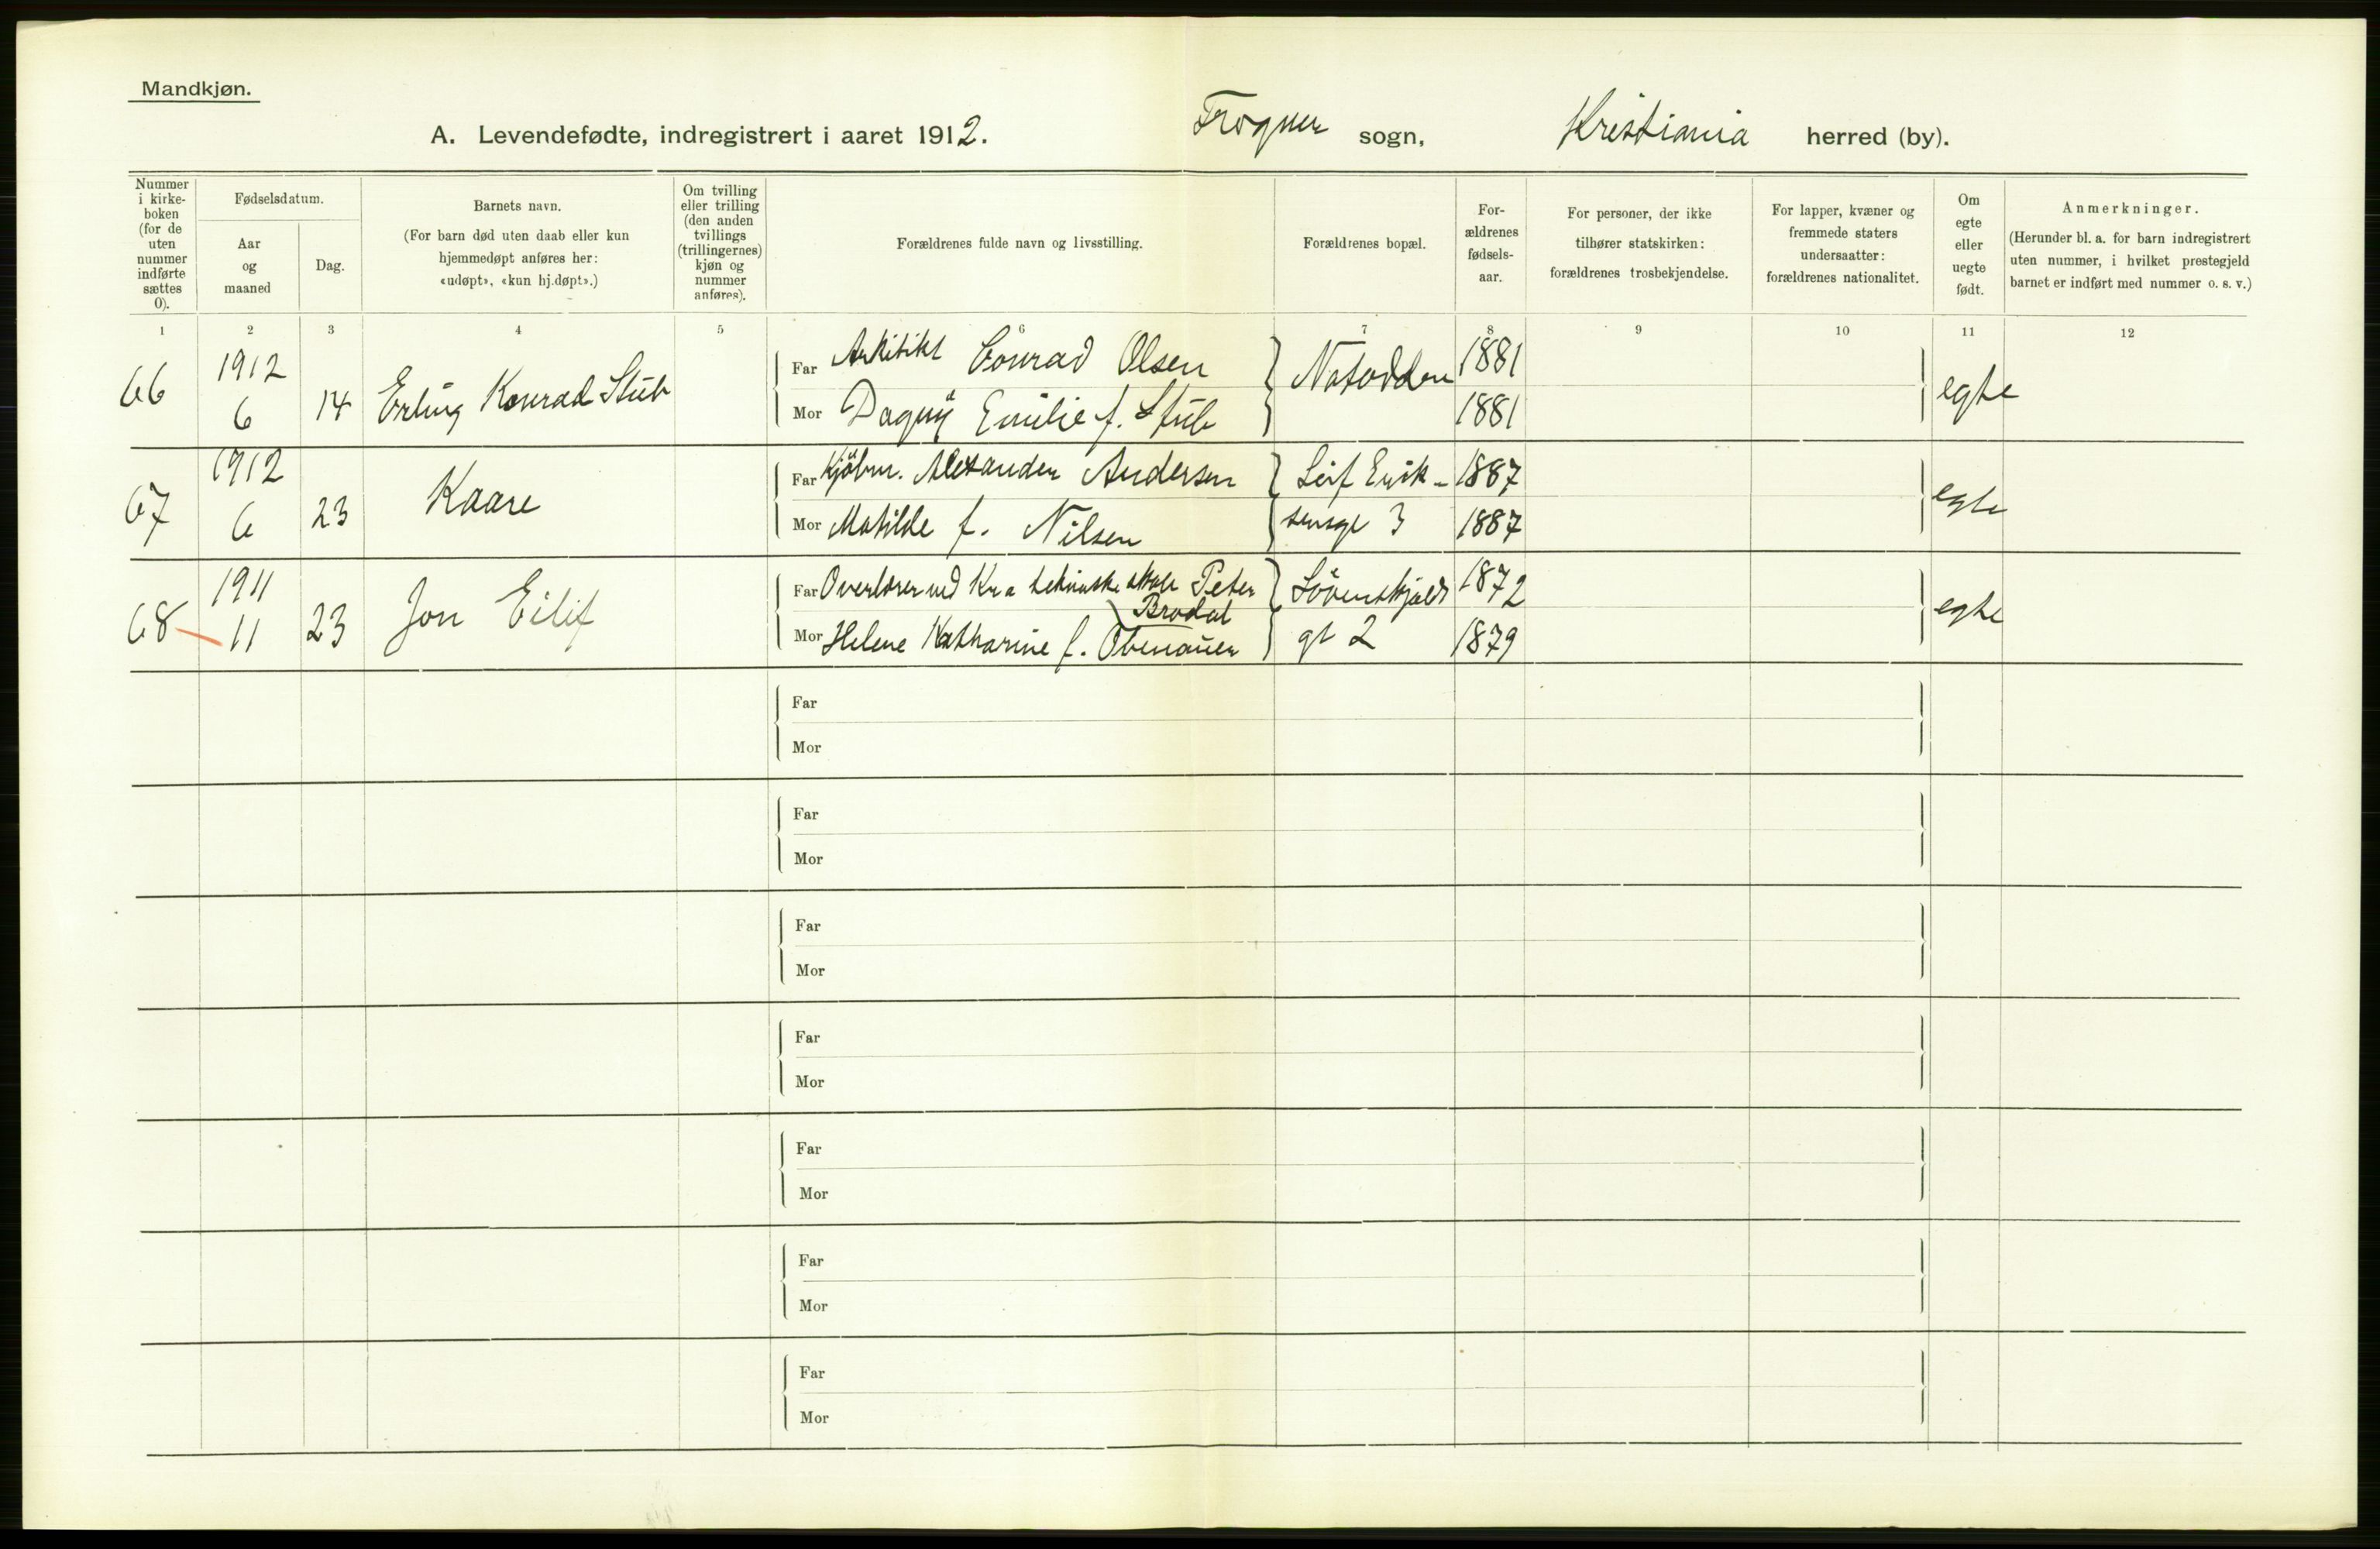 Mandkjøn.
A. Levendefødte, indregistrert i aaret 1912. Frogner sogn, Kristiania herred (by).
Nummer i kirke-boken (for de uten nummer indførte sættes 0).
Fødselsdatum.
Aar og maaned
Dag.
Barnets navn.
(For barn død uten daab eller kun
hjemmedøpt anføres her:
«udøpt», «kun hj.døpt».)
Om tvilling
eller trilling
(den anden
tvillings
(trillingernes)
kjøn og
nummer
anføres).
Forældrenes fulde navn og livsstilling.
Forældrenes bopæl.
For-
ældrenes
fødsels-
aar.
For personer, der ikke
tilhører statskirken:
forældrenes trosbekjendelse.
For lapper, kvæner og
fremmede staters
undersaatter:
forældrenes nationalitet.
Om
egte
eller
uegte
født.
Anmerkninger.
(Herunder bl. a. for barn indregistrert
uten nummer, i hvilket prestegjeld
barnet er indført med nummer o. s. v.)
1 2 3 4 5 6 7 8 9 10 11 12
66 1912 6 14 Erling Konrad Stub
Far Arkitekt Conrad Olsen
Mor Dagny Emilie f. Stub
Notodden 1881 1881 egte
67 1912 6 23 Kaare
Far Kjöbm. Alexander Andersen
Mor Matilde f. Nilsen
Leif Erik-
sensgt 3
1887 1887 egte
68 1911 11 23 Jon Eilif
Far Overlærer ved Kra tekniske skole Peter
Brodal
Mor Helene Katharine f. Obenauer
Lövenskjolds
gt 2
1872 1879 egte
Far
Mor
Far
Mor
Far
Mor
Far
Mor
Far
Mor
Far
Mor
Far
Mor